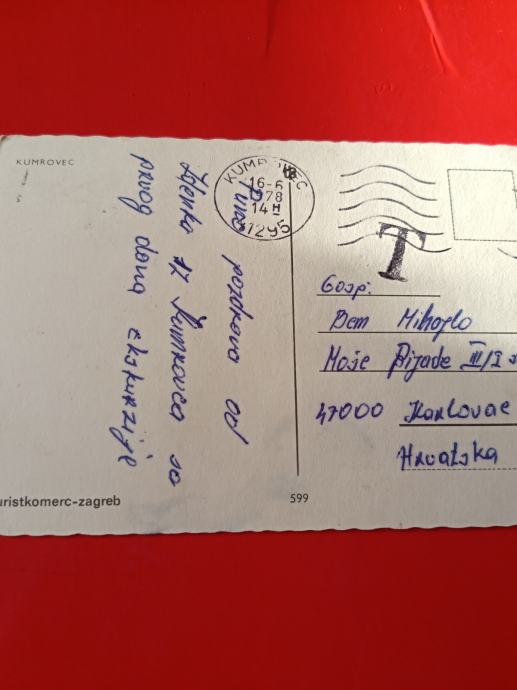 KUMROVEC
Puno pozdrava od
Zdenka iz Kumrovca sa
prvog dana ekskurzije
KUMROVEC
16-6
1978
14 H
41295
T
Gosp.
Bem Mihajlo
Moše Pijade III/I
47000 Karlovac
Hrvatska
uristkomerc-zagreb
599